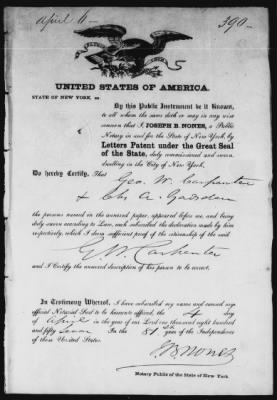 april 6 390
UNITED STATES OF AMERICA.
STATE OF NEW YORK, ss
By this Public Instrument be it Known,
to all whom the same doth or may in any wise
concern that I, JOSEPH B. NONES, a Public
Notary in and for the State of New York, by
Letters Patent under the Great Seal
of the State, duly commissioned and sworn
dwelling in the City of New York,
Do hereby Certify, That
Geo. W. Carpenter
& Chs A. Gadsden
the persons named in the annexed paper, appeared before me, and being
duly sworn according to Law, each subscribed the declaration made by him
respectively, which I deem sufficient proof of the citizenship of the said
G. W. Carpenter
and I Certify the annexed description of his person to be correct.
In Testimony Whereof, I have subscribed my name and caused my
official Notarial Seal to be hereunto affixed, the 4 day
of April in the year of our Lord one thousand eight hundred
and fifty seven In the 81st year of the Independence
of these United States.
J B Nones
Notary Public of the State of New York